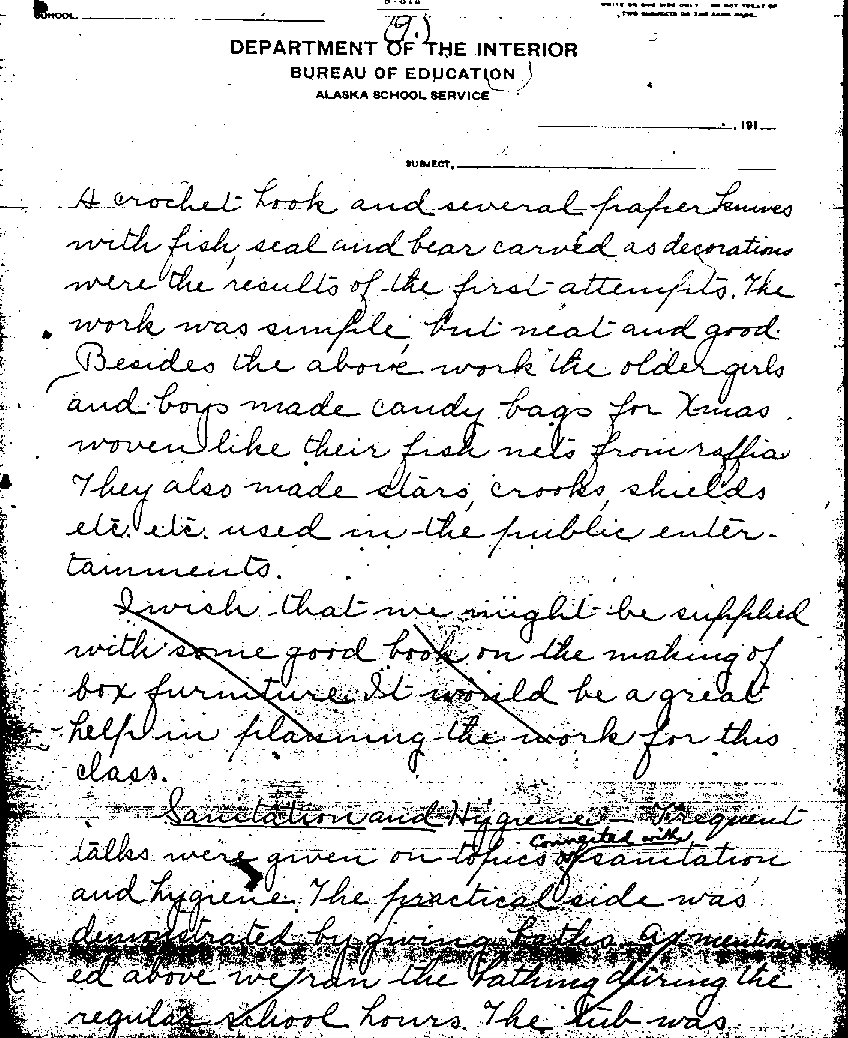 SCHOOL,
(9.)
DEPARTMENT OF THE INTERIOR
BUREAU OF EDUCATION
ALASKA SCHOOL SERVICE
, 191
SUBJECT,
A crochet hook and several paper knives
with fish, seal and bear carved as decorations
were the results of the first attempts. The
work was simple, but neat and good.
Besides the above work the older girls
and boys made candy bags for Xmas
woven like their fish nets from raffia
They also made stars, crooks, shields
etc. etc. used in the public enter-
tainments.
I wish that we might be supplied
with some good book on the making of
box furniture. It would be a great
help in planning the work for this
class.
Sanitation and Hygiene - Frequent
connected with
talks were given on topics of sanitation
and hygiene. The practical side was
demonstrated by giving baths. As mention-
ed above we ran the bathing during the
regular school hours. The tub was